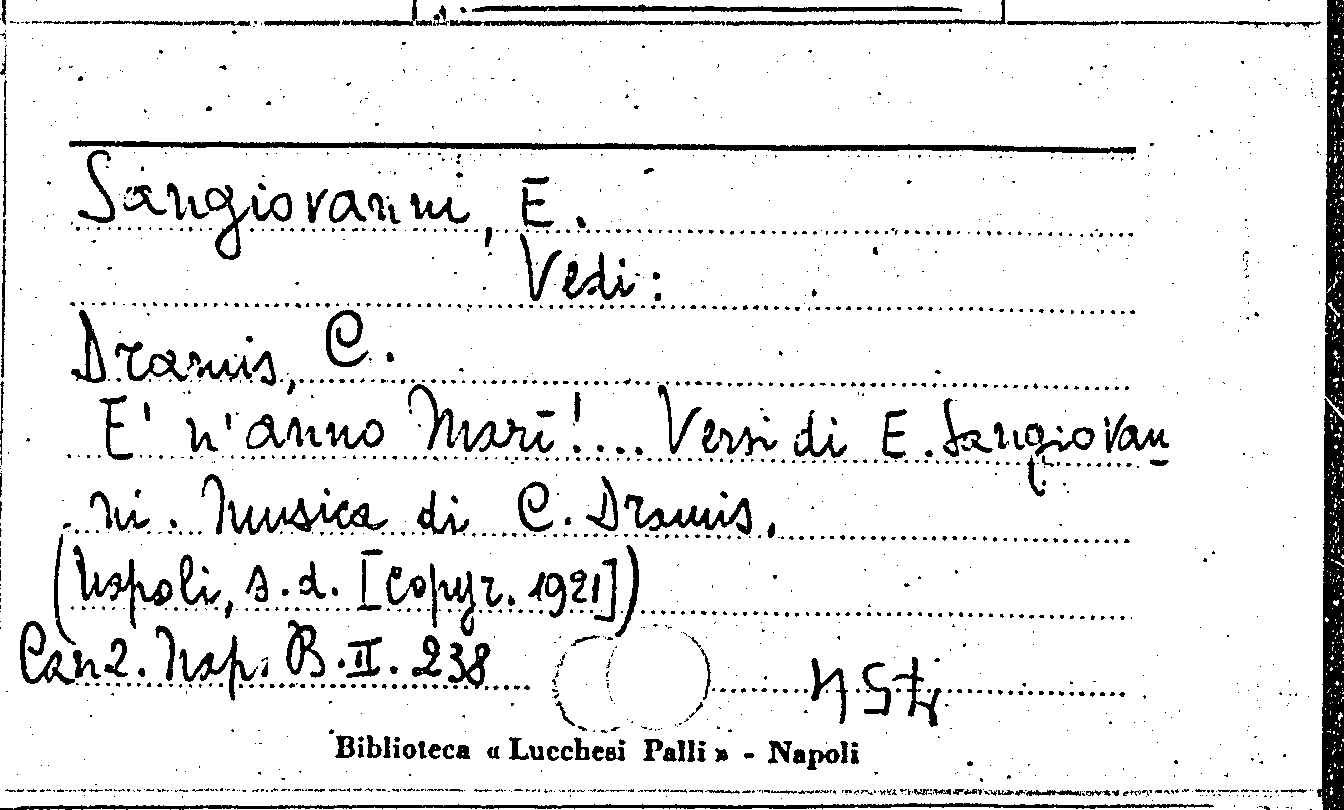 Sangiovanni, E.
Vedi:
Dramis, C.
E' n'anno Marì!... Versi di E. Sangiovan
ni. Musica di C. Dramis.
(Napoli, s.d. [Copyr. 1921])
Canz. Nap. B.II.238
Biblioteca « Lucchesi Palli » - Napoli